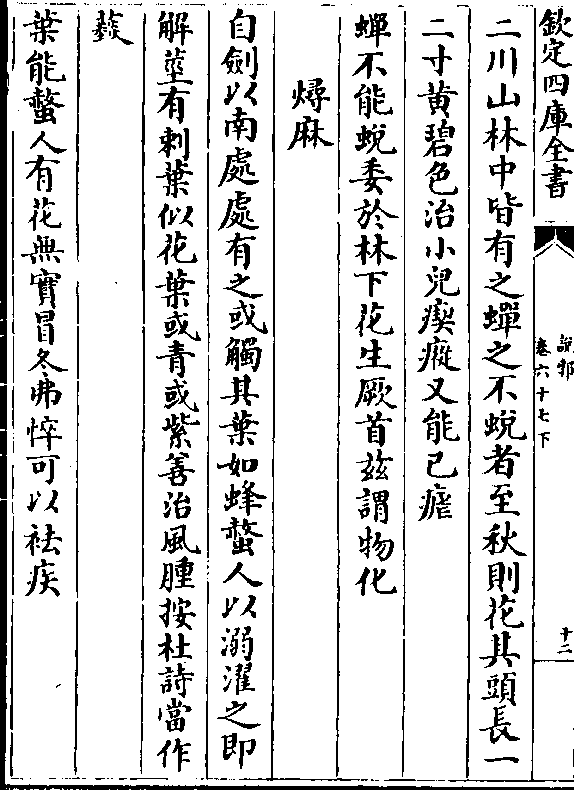 欽定四庫全書
說郛
卷六十七下
十二
二川山林中皆有之蟬之不蛻者至秋則花其頭長一
二寸黃碧色治小兒瘈瘲又能已瘧
蟬不能蛻委於林下花生厥首茲謂物化
燖麻
自劍以南處處有之或觸其葉如蜂螫人以溺濯之即
解莖有刺葉似花葉或青或紫善治風腫按杜詩當作
䕭
葉能螫人有花無實冒冬弗悴可以袪疾